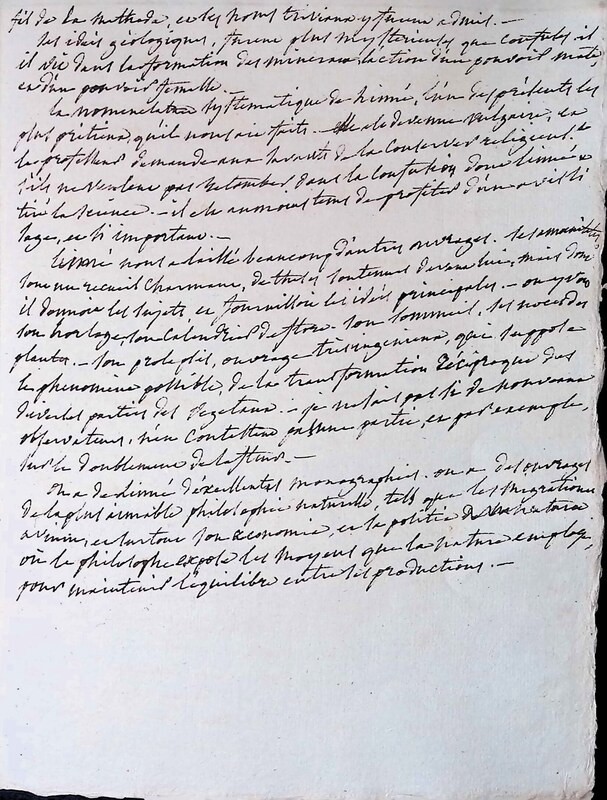 fil de la methode, et les noms triviaux y furent admis. —
ses idées géologiques, furent plus mysterieuses que confuses il
il vit dans la formation des mineraux l'action d'un pouvoir male
et d'un pouvoir femelle. —
la nomenclature systematique de Linné, l'un des présents les
plus pretieux, qu'il nous ait faits — elle est devenue vulgaire, et
le professeur demande aux savants de la conserver religieust.
s'ils ne veulent pas retomber, dans la confusion dont linné a
tiré la science. — il est au moins tems de profiter d'un avis si
sage, et si important. —
Linné nous a laissé beaucoup d'autres ouvrages. ses amanités
sont un recueil charmant, de theses soutenues devant lui, mais dont
il donnoit les sujets, et fournissoit les idées principales — on y voit
son horloge, son calendrier de flore. son sommeil, ses noces des
plantes. — son prolepsis, ouvrage tres ingenieux, qui suppose
le phenomene possible, de la transformation réciproque des
diverses parties des vegetaux. — je ne sais pas si de nouveaux
observateurs, n'en contestent pas une partie, et par exemple,
sur le doublement de la fleur. —
On a de Linné d'éxcellentes monographies. on a des ouvrages
de la plus aimable philosophie naturelle, tels que les migrationes
avium, et surtout son economie, et la politia naturae
où le philosophe expose les moyens que la nature employe,
pour maintenir l'equilibre entre ses productions. —